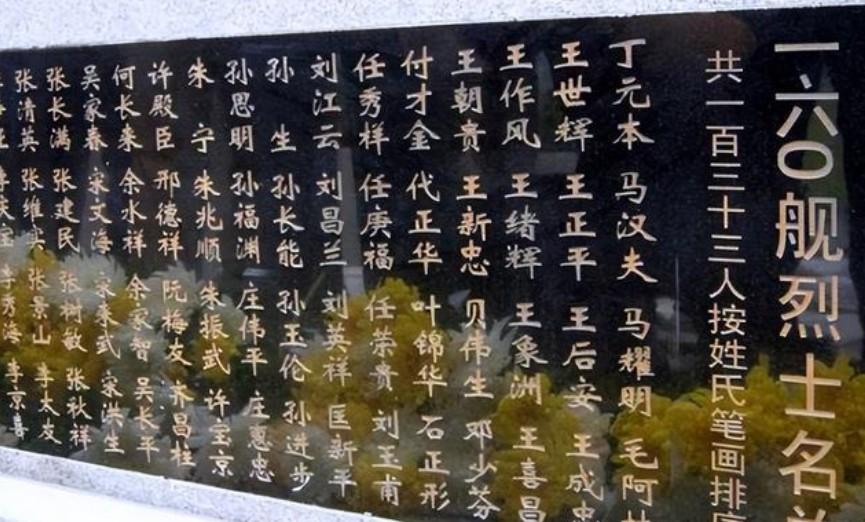 一六〇舰烈士名
共一百三十三人按姓氏笔画排
丁元本 马汉夫 马耀明 毛阿
王世辉 王正平 王后安 王成
王作风 王绪辉 王象洲 王喜昌
王朝贵 王新忠 贝伟生 邓少芬
付才金 代正华 叶锦华 石正形
任秀样 任庚福 任荣贵 刘玉甫
刘江云 刘昌兰 刘英祥 匡新平
孙生 孙长能 孙玉伦 孙进步
孙思明 孙福渊 庄伟平 庄惠忠
朱宁 朱兆顺 朱振武 许宝京
许殿臣 邢德祥 阮梅友 齐昌柱
何长来 余水祥 余家智 吴长平
吴家春 宋文海 宋来武 宋洪生
张长满 张建民 张树敏 张秋祥
张清英 张维实 张景山 李太友
李秀海 李京喜